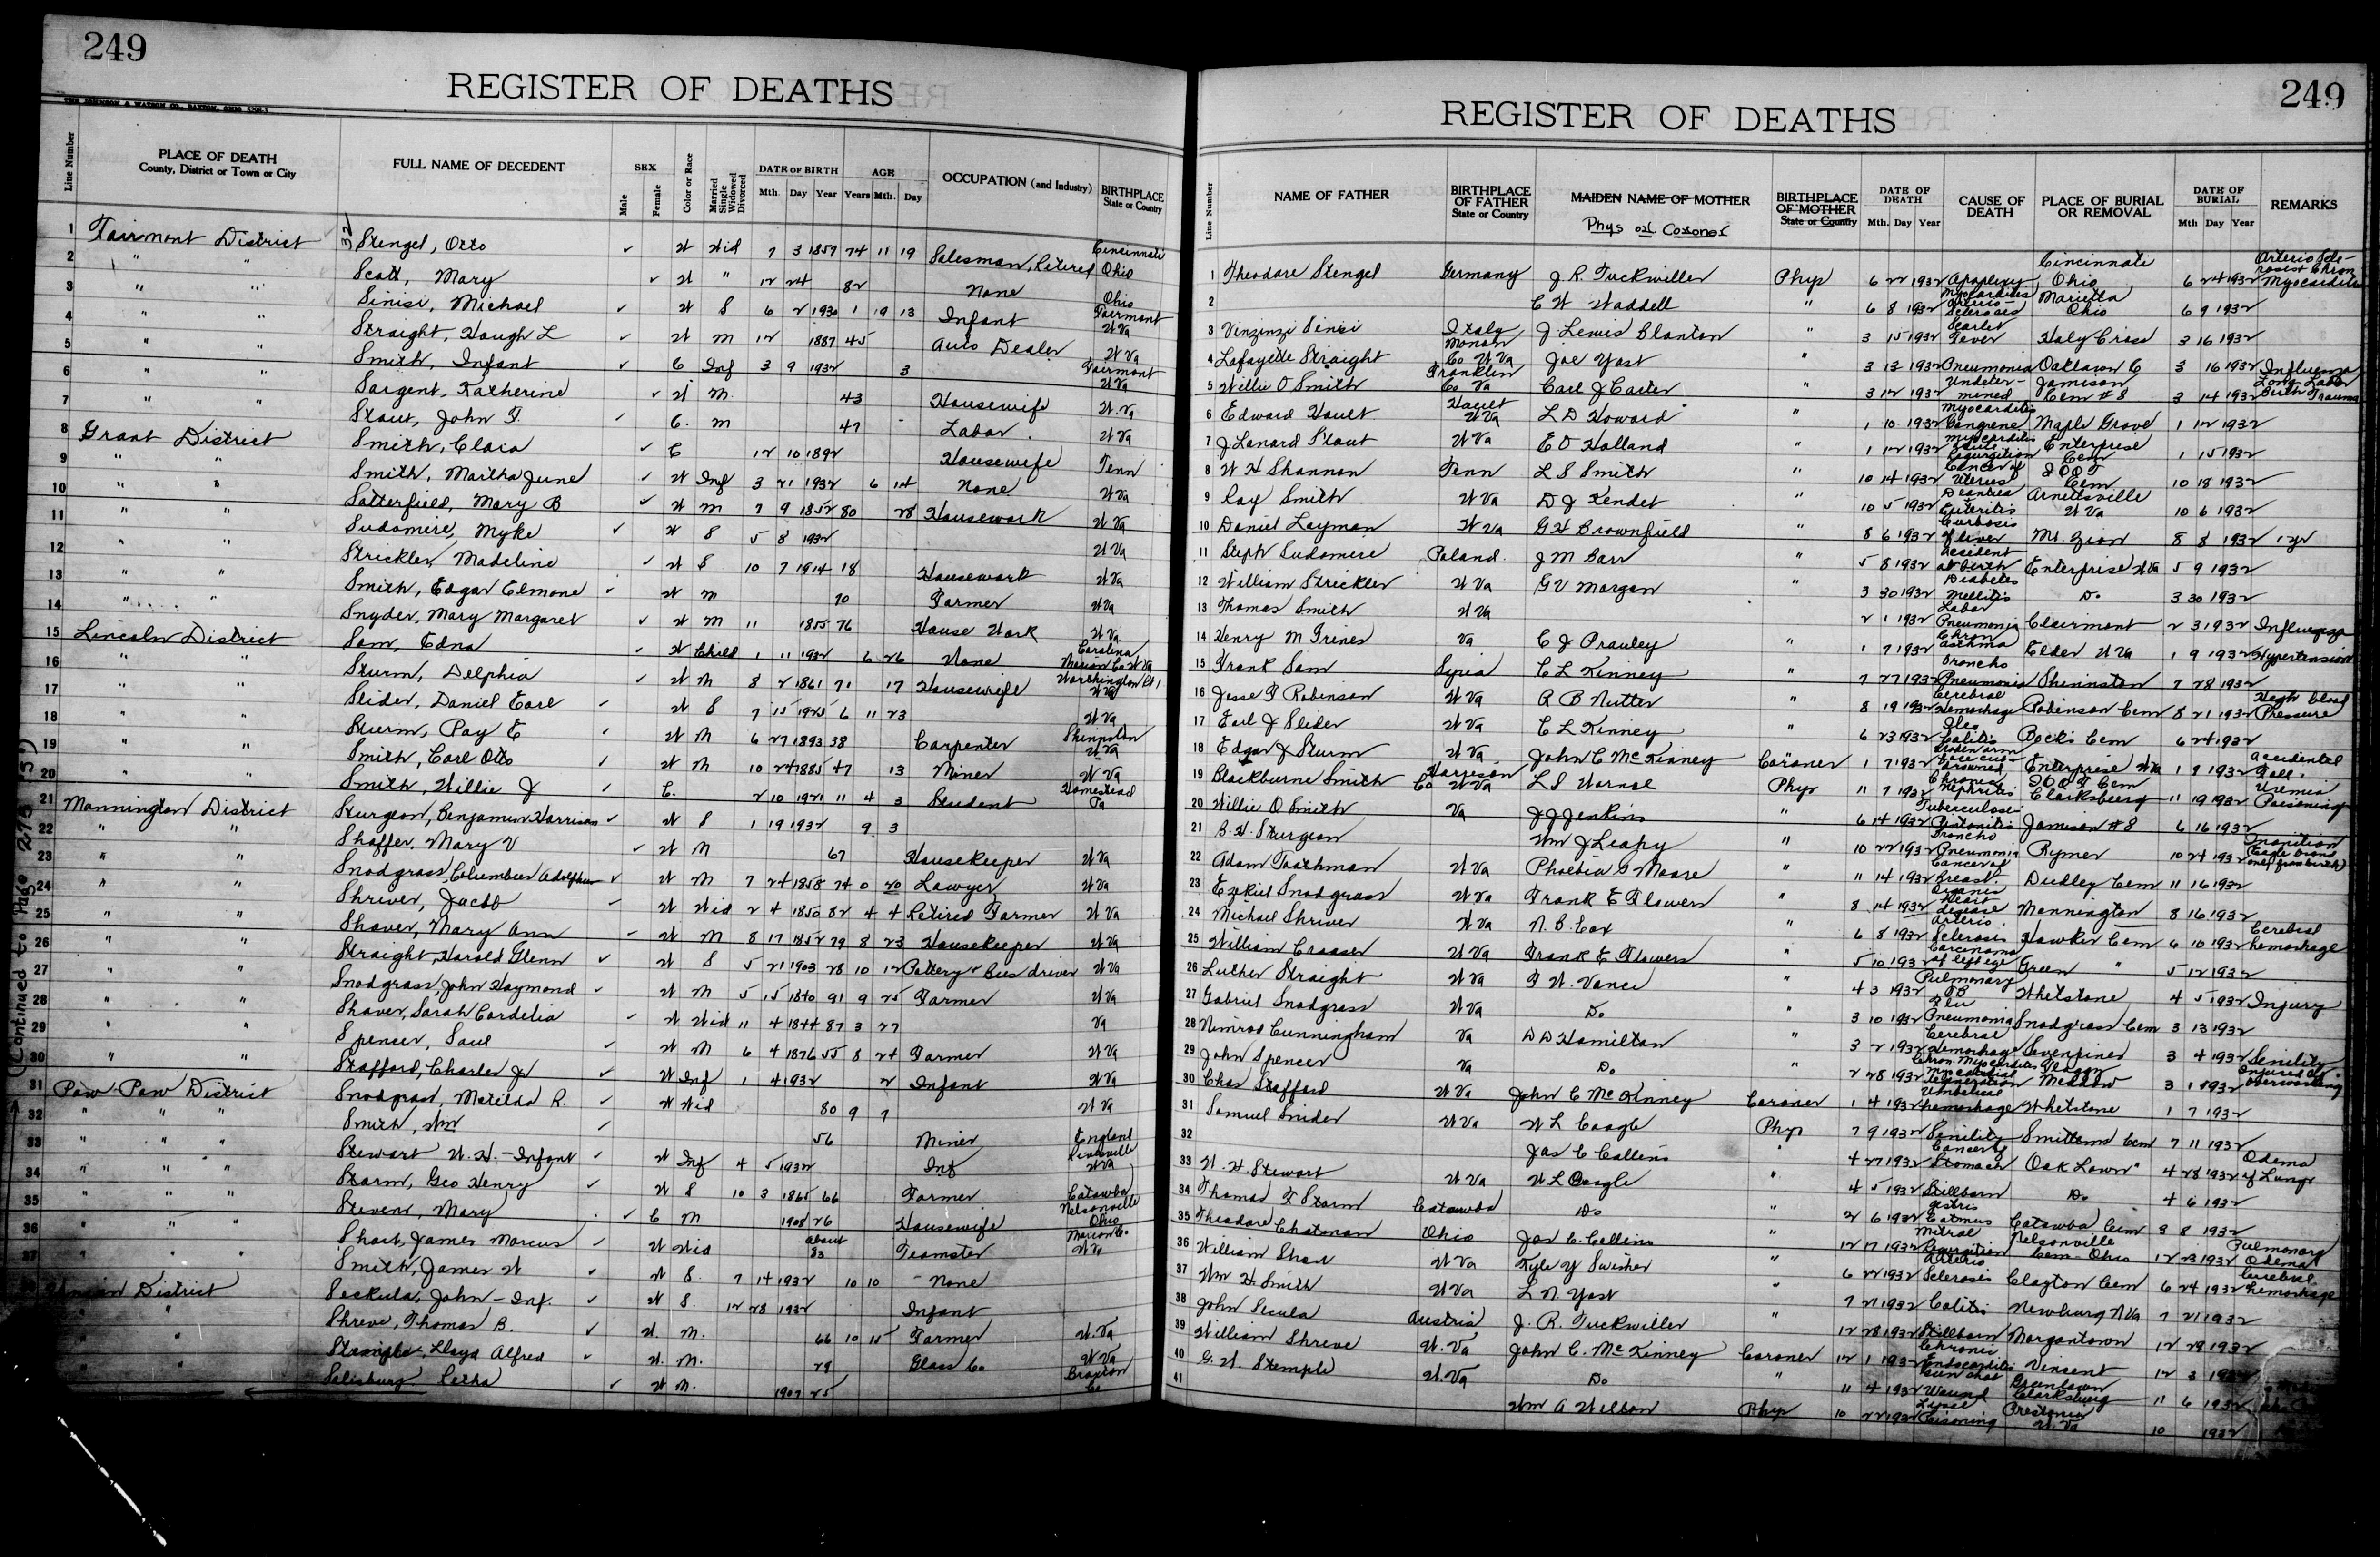 249
REGISTER OF DEATHS
THE JOHNSON & WATSON CO., DAYTON, OHIO
Line Number
PLACE OF DEATH County, District or Town or City
FULL NAME OF DECEDENT
SEX Male Female
Color or Race
Married Single Widowed Divorced
DATE OF BIRTH Mth. Day Year
AGE Years Mth. Day
OCCUPATION (and Industry)
BIRTHPLACE State or Country
32
1 Fairmont District Stengel, Otto ✓ W Wid 7 3 1857 74 11 19 Salesman, Retired Cincinnati Ohio
2 " " Scott, Mary ✓ W " 12 24 82 None Ohio
3 " " Sinisi, Michael ✓ W S 6 2 1930 1 19 13 Infant Fairmont W Va
4 " " Straight, Haugh L ✓ W m 12 1887 45 Auto Dealer W Va
5 " " Smith, Infant ✓ C Inf 3 9 1932 3 Fairmont W Va
6 " " Sargent, Katherine ✓ W M 43 Housewife W. Va
7 " " Stout, John F. ✓ C. m 47 Labor. W Va
8 Grant District Smith, Clara ✓ C 12 10 1892 Housewife Tenn
9 " " Smith, Martha June ✓ W Inf 3 21 1932 6 14 None W Va
10 " " Satterfield, Mary B ✓ W m 7 9 1852 80 28 Housework W Va
11 " " Sudomire, Myke ✓ W S 5 8 1932 W Va
12 " " Strickler, Madeline ✓ W S 10 7 1914 18 Housework W Va
13 " " Smith, Edgar Elmone ✓ W m 70 Farmer W Va
14 " " Snyder, Mary Margaret ✓ W M 11 1855 76 House Work W Va
15 Lincoln District Sam, Edna ✓ W Child 1 11 1932 6 26 None Carolina Marion Co W Va
16 " " Sturm, Delphia ✓ W M 8 2 1861 71 17 Housewife Worthington Rt 1 W Va
17 " " Slider, Daniel Earl ✓ W S 7 15 1925 6 11 23 W Va
18 " " Sturm, Ray E ✓ W M 6 27 1893 38 Carpenter Shinnston W Va
19 " " Smith, Carl Otto ✓ W M 10 24 1885 47 13 Miner W Va
20 " " Smith, Willie J ✓ C. 2 10 1921 11 4 3 Student Homestead Pa
21 Mannington District Sturgeon, Benjamin Harrison ✓ W S 1 19 1932 9 3
22 " " Shaffer, Mary V ✓ W M 67 Housekeeper W Va
23 " " Snodgrass, Columbus Adolphus ✓ W M 7 24 1858 74 0 20 Lawyer W Va
24 " " Shriver, Jacob W Wid 2 4 1850 82 4 4 Retired Farmer W Va
25 " " Shaver, Mary Ann W M 8 17 1852 79 8 23 Housekeeper W Va
26 " " Straight, Harold Glenn ✓ W S 5 21 1903 28 10 12 Pottery & Bus driver W Va
27 " " Snodgrass, John Haymond W M 5 15 1840 91 9 25 Farmer W Va
28 " " Shaver, Sarah Cordelia W Wid 11 4 1844 87 3 27 Va
29 " " Spencer, Saul ✓ W M 6 4 1876 55 8 24 Farmer W Va
30 " " Stafford, Charles Jr ✓ W Inf 1 4 1932 2 Infant W Va
31 Paw Paw District Snodgrass, Matilda R. ✓ W Wid 80 9 7 W Va
32 " " " Smith, Wm ✓ 56 Miner England
33 " " " Stewart W. H. - Infant ✓ W Inf 4 5 1932 Inf Rivesville W Va
34 " " " Storm, Geo Henry ✓ W S 10 3 1865 66 Farmer Catawba
35 " " " Stevens, Mary ✓ C M 1908 26 Housewife Nelsonville Ohio
36 " " " Short, James Marcus ✓ W Wid about 83 Teamster Marion Co. W Va
37 " " " Smith, James W ✓ W S. 7 14 1932 10 10 - None
Union District Seckula, John - Inf. ✓ W S. 12 28 1932 Infant
" " Shreve, Thomas B. ✓ W. M. 66 10 15 Farmer W. Va
" " Stemple, Lloyd Alfred ✓ W. M. 29 Glass Co W Va
" " Salisburg Letha ✓ W M. 1907 25 Braxton Co
(Continued to Page 273 ½)
249
REGISTER OF DEATHS
Line Number
NAME OF FATHER
BIRTHPLACE OF FATHER State or Country
MAIDEN NAME OF MOTHER
Phys or Coroner
BIRTHPLACE OF MOTHER State or Country
DATE OF DEATH Mth. Day Year
CAUSE OF DEATH
PLACE OF BURIAL OR REMOVAL
DATE OF BURIAL Mth Day Year
REMARKS
1 Theodore Stengel Germany J. R. Tuckwiller Phys 6 22 1932 Apoplexy Cincinnati Ohio 6 24 1932 Arterio Sclerosis & Chron Myocarditis
2 C W Waddell " 6 8 1932 Myocarditis Arterio-Sclerosis Marietta Ohio 6 9 1932
3 Vinzinzi Sinisi Italy J. Lewis Blanton " 3 15 1932 Scarlet Fever Holy Cross 3 16 1932
4 Lafayette Straight Monon Co W Va Joe Yost " 3 13 1932 Pneumonia Oaklawn C 3 16 1932 Influenza
5 Willie O Smith Franklin Co Va Carl J Carter " 3 12 1932 Undetermined Jamison Cem #8 3 14 1932 Long Labor Birth Trauma
6 Edward Hoult Hoult W Va L D Howard " 1 10 1932 Myocarditis Gangrene Maple Grove 1 12 1932
7 J Lanard Stout W Va E D Holland " 1 12 1932 Myocarditis Acute Enterprise Cem 1 15 1932
8 W H Shannon Tenn L S Smith " 10 14 1932 Cancer of Uterus I O O F Cem 10 18 1932
9 Ray Smith W Va D J Kendet " 10 5 1932 Enteritis Arnettsville W Va 10 6 1932
10 Daniel Layman W Va G H Brownfield " 8 6 1932 of liver Mt. Zion 8 8 1932 1 yr
11 Steph Sudomire Poland. J M Barr " 5 8 1932 Accident at birth Enterprise W Va 5 9 1932
12 William Strickler W Va G V Morgan " 3 30 1932 Diabetes Mellitis Do 3 30 1932
13 Thomas Smith W Va 2 1 1932 Lobar Pneumonia Clairmont 2 3 1932 Influenza
14 Henry M Grines Va C J Prauley " 1 7 1932 Chron Asthma Elder W Va 1 9 1932 Hypertension
15 Frank Sam Syria C L Kinney 7 27 1932 Broncho Pneumonia Shinnston 7 28 1932
16 Jesse F Robinson W Va A B Nutter " 8 19 1932 Cerebral Hemorhage Robinson Cem 8 21 1932 High Blood Pressure
17 Earl J Slider W Va C L Kinney " 6 23 1932 Ileo Colitis Bocks Cem 6 24 1932
18 Edgar J Sturm W Va John C McKinney Coroner 1 7 1932 Enterprise W Va 1 9 1932 Accidental Fall.
19 Blackburne Smith Harrison Co W Va L S Warnal Phys 11 7 1932 Chronic Nephritis I O O F Cem Clarksburg 11 19 1932 Uremia Poisoning
20 Willie O Smith Va J J Jenkins " 6 14 1932 Tuberculosis Peritonitis Jamison #8 6 16 1932
21 B. H. Sturgeon Wm J Leahy " 10 22 1932 Broncho Pneumonia Rymer 10 24 1932 Inanition
22 Adam Toothman W Va Phoebia G Moore " 11 14 1932 Cancer of Breast. Dudley Cem 11 16 1932
23 Ezekiel Snodgrass W Va Frank E Flowers " 8 14 1932 Organic Heart disease Mannington 8 16 1932
24 Michael Shriver W Va N. B. Cox " 6 8 1932 Arterio Sclerosis Hawker Cem 6 10 1932 Cerebral hemorhage
25 William Crosser W Va Frank E Flowers " 5 10 1932 Carcinoma of left eye Green " 5 12 1932
26 Luther Straight W Va F W. Vance " 4 3 1932 Pulmonary TB Whetstone 4 5 1932 Injury
27 Gabriel Snodgrass W Va Do " 3 10 1932 Flu Pneumonia Snodgrass Cem 3 13 1932
28 Nimrod Cunningham Va D D Hamilton " 3 2 1932 Cerebral Hemorhage Sevenpines 3 4 1932 Senility
29 John Spencer Va Do " 2 28 1932 Chron. Myocarditis Myocardial Degeneration Meadow 3 1 1932
30 Chas Stafford W Va John C McKinney Coroner 1 4 1932 Umbelical hemorhage Whetstone 1 7 1932
31 Samuel Snider W Va W L Coogle Phys 7 9 1932 Senility Smittown Cem 7 11 1932
32 Jas C Collins " 4 27 1932 Cancer of Stomach Oak Lawn " 4 28 1932 Odema of Lungs
33 W. H. Stewart W Va W L Coogle " 4 5 1932 Stillborn Do 4 6 1932
34 Thomas F Storm Catawba Do " 2 6 1932 Catawba Cem 9 8 1932
35 Theodore Chatman Ohio Jas C. Collins " 12 17 1932 Mitral Nelsonville Cem - Ohio 12 23 1932 Pulmonary Odema
36 William Short W Va Kyle Y Swisher " 6 22 1932 Arterio Sclerosis Clayton Cem 6 24 1932 Cerebral hemorhage
37 Wm H Smith W Va L N Yost " 7 21 1932 Colitis Newburg W Va 7 21 1932
38 John Secula Austria J. R. Tuckwiller " 12 28 1932 Stillborn Morgantown 12 29 1932
39 William Shreve W. Va John C. McKinney Coroner 12 1 1932 Chronic Endocarditis Vincent 12 3 1932
40 G. W. Stemple W. Va Do " 11 4 1932 Gun shot Wound Greenlawn Clarksburg 11 6 1932
41 Wm A Welton Phys 10 22 1932 Lysol Poisoning W. Va 10 1932